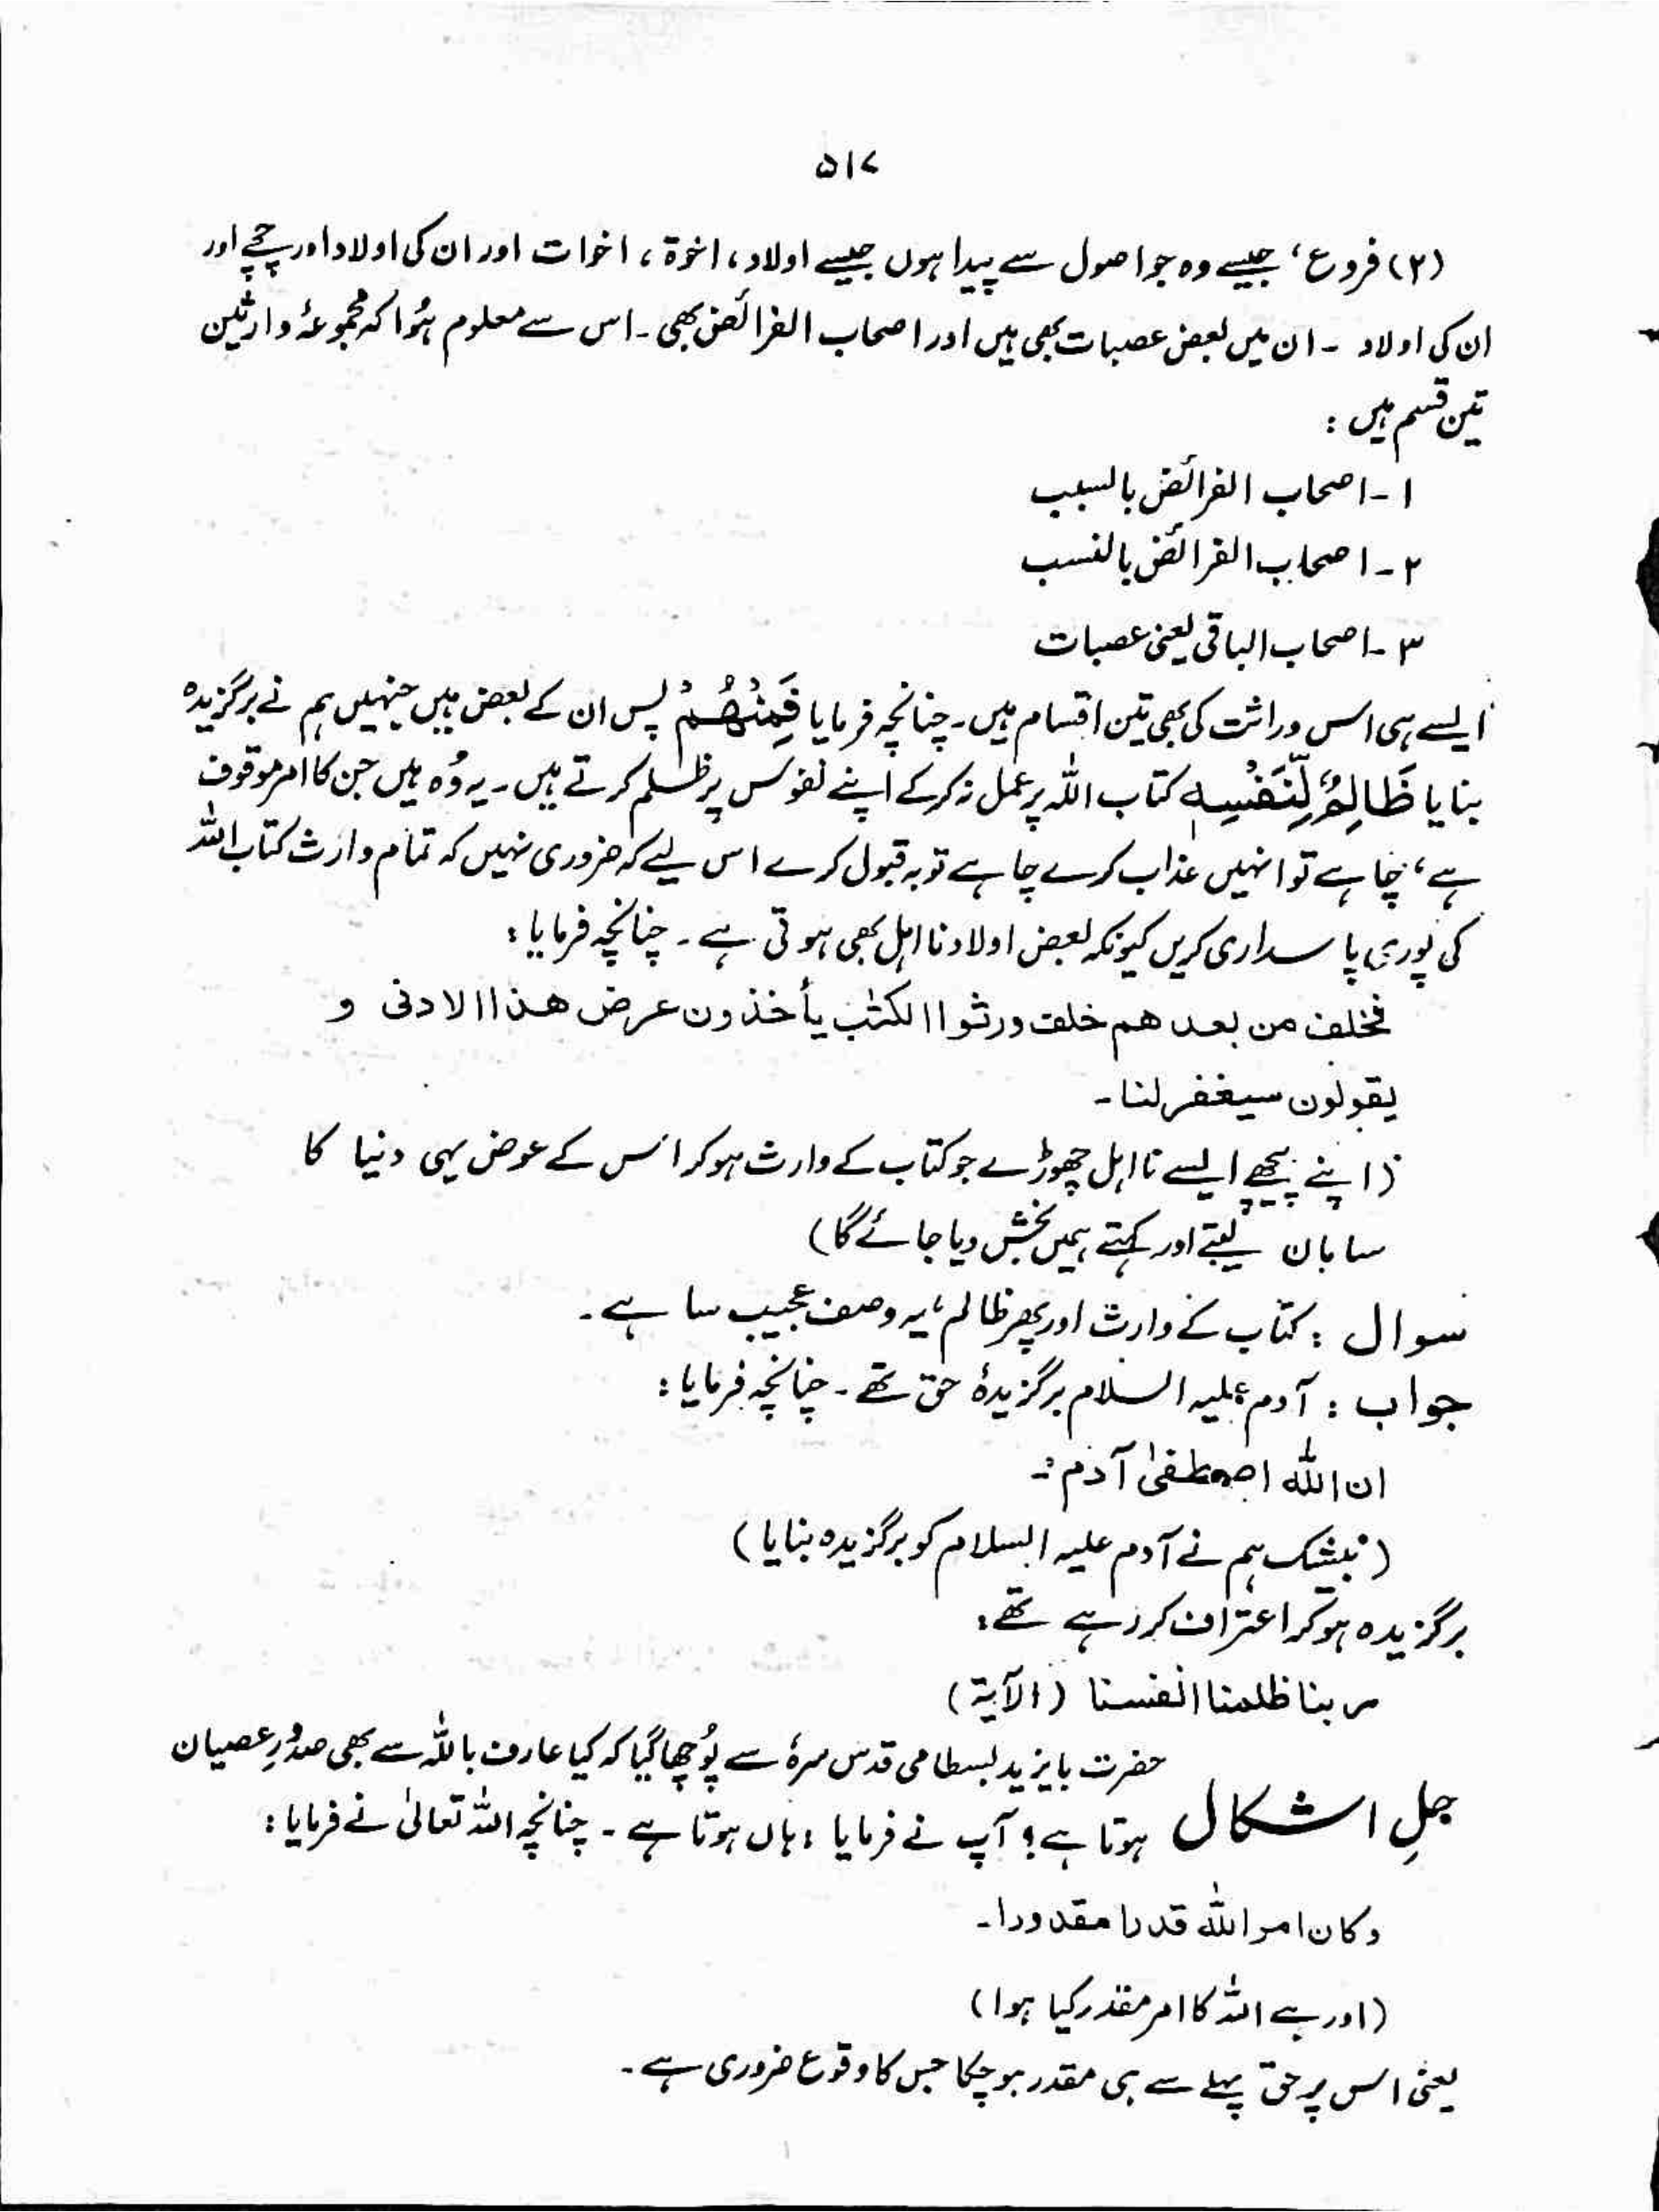 ۵۱۷
(۲) فروع، جیسے وہ جو اصول سے پیدا ہوں جیسے اولاد، اخوۃ، اخوات اور ان کی اولاد اور چچے اور
ان کی اولاد ۔ ان میں بعض عصبات بھی ہیں اور اصحاب الفرائض بھی ۔ اس سے معلوم ہُوا کہ مجموعۂ وارثین
تین قسم ہیں :
۱ ۔ اصحاب الفرائض بالسبب
۲ ۔ اصحاب الفرائض بالنسب
۳ ۔ اصحاب الباقی یعنی عصبات
ایسے ہی اس وراثت کی بھی تین اقسام ہیں ۔ چنانچہ فرمایا فَمِنْهُمْ پس ان کے بعض ہیں جنہیں ہم نے برگزیدہ
بنایا ظَالِمٌ لِّنَفْسِهٖ کتاب اللہ پر عمل نہ کر کے اپنے نفوس پر ظلم کرتے ہیں ۔ یہ وُہ ہیں جن کا امر موقوف
ہے، چاہے تو انہیں عذاب کرے چاہے توبہ قبول کرے اس لیے کہ ضروری نہیں کہ تمام وارث کتاب اللہ
کی پوری پاسداری کریں کیونکہ بعض اولاد نااہل بھی ہوتی ہے ۔ چنانچہ فرمایا :
فخلف من بعدهم خلف ورثوا الکتٰب یأخذون عرض هذا الادنی و
یقولون سیغفر لنا ۔
(اپنے پیچھے ایسے نااہل چھوڑے جو کتاب کے وارث ہو کر اس کے عوض یہی دنیا کا
سامان لیتے اور کہتے ہمیں بخش دیا جائے گا)
سوال : کتاب کے وارث اور پھر ظالم، یہ وصف عجیب سا ہے ۔
جواب : آدم علیہ السلام برگزیدۂ حق تھے ۔ چنانچہ فرمایا :
ان اللّٰہ اصطفیٰ آدم ۔
(بیشک ہم نے آدم علیہ السلام کو برگزیدہ بنایا)
برگزیدہ ہو کر اعتراف کر رہے تھے :
ربنا ظلمنا انفسنا (الآیۃ)
حضرت بایزید بسطامی قدس سرہٗ سے پُوچھا گیا کہ کیا عارف باللہ سے بھی صدُورِ عصیان
حلِ اشکال ہوتا ہے؟ آپ نے فرمایا : ہاں ہوتا ہے ۔ چنانچہ اللہ تعالیٰ نے فرمایا :
وکان امر اللّٰہ قدرا مقدورا ۔
(اور ہے اللہ کا امر مقدر کیا ہوا)
یعنی اس پر حق پہلے سے ہی مقدر ہو چکا جس کا وقوع ضروری ہے ۔